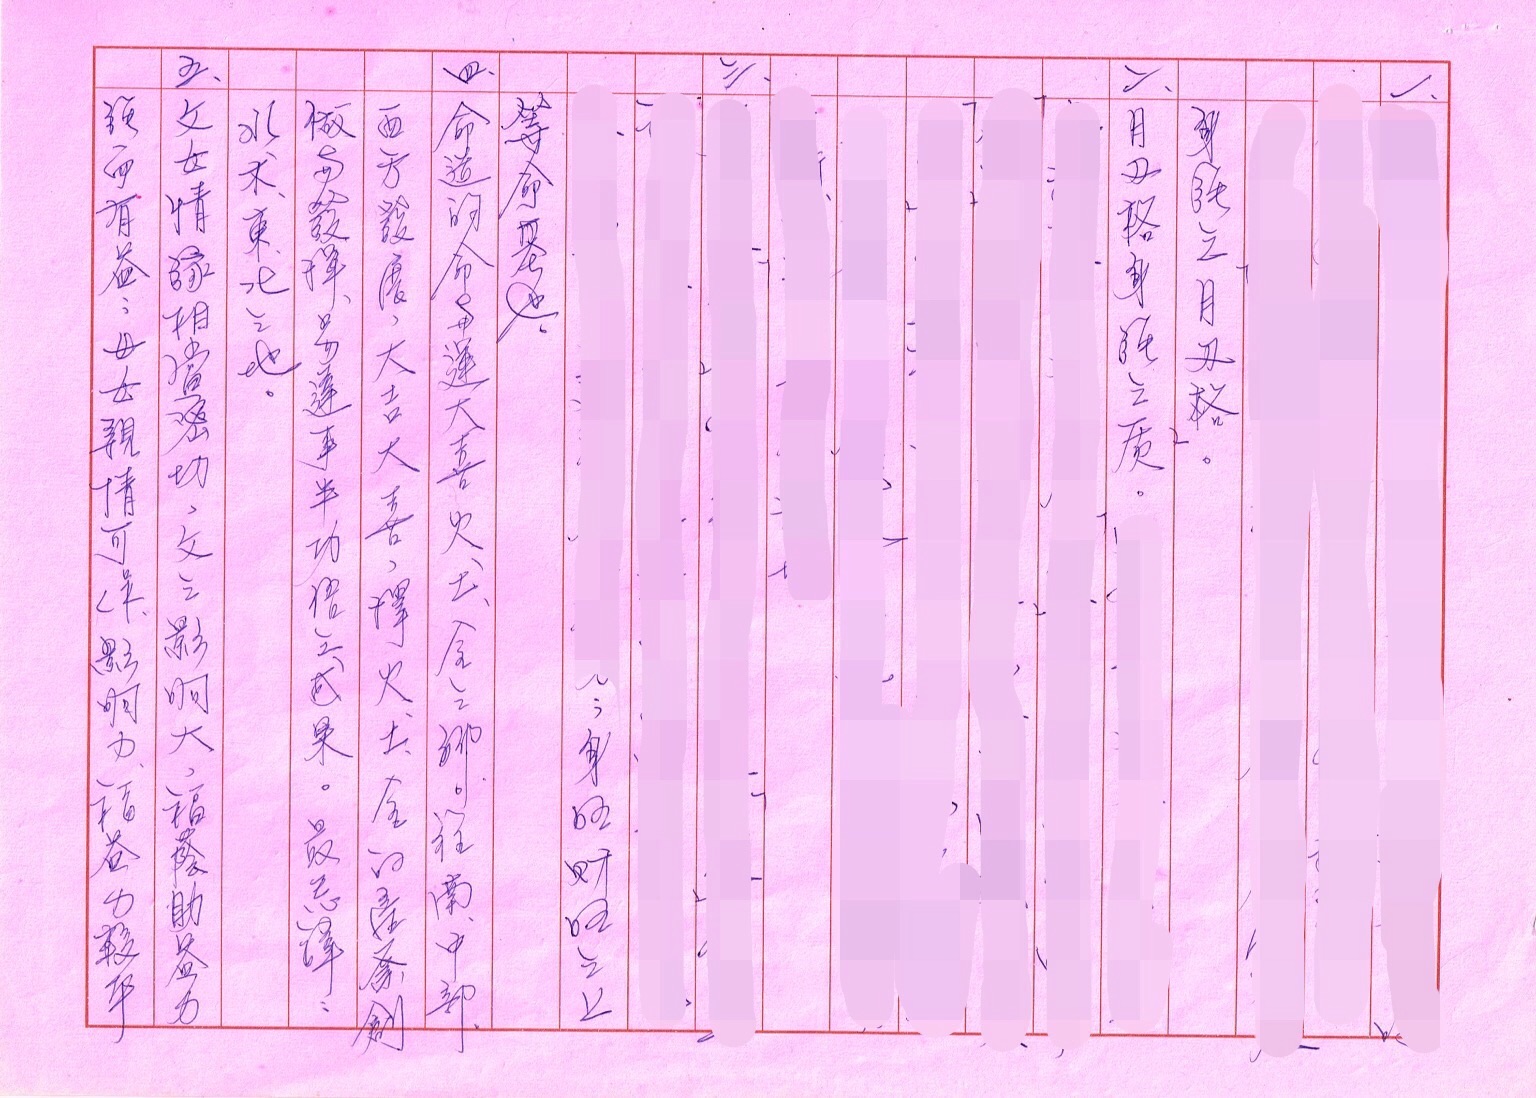 一、
身強之月刃格。
二、
月刃格身強之质。
三、
身旺財旺之上
等命基也。
四、
命造的命与運大喜火、土、金之鄉。往南、中部、
西方發展、大吉大喜、擇火、土、金的產業創
做与發揮、必達事半功倍之成果。最忌諱:
水、木、東、北之地。
五、
父女情緣相當密切、父之影响大、福蔭助益力
強而有益;母女親情可保、影响力、福益力較平